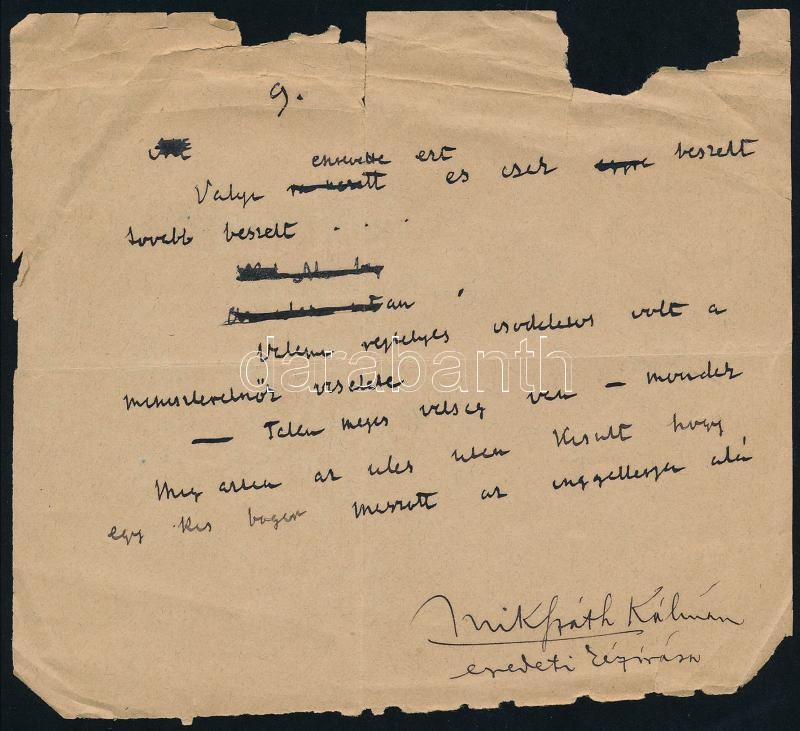 9.
eszrevette ezt
Valye es csak beszelt
tovabb beszelt . . .
an
Valami rejtelyes csodalatos volt a
miniszterelnök viselete
— Talan megis valsag van — mondak
Meg aztan az ules utan kisult hogy
egy kis bogar maszott az inggallerja alá
Mikszáth Kálmán
eredeti kézirása
darabanth